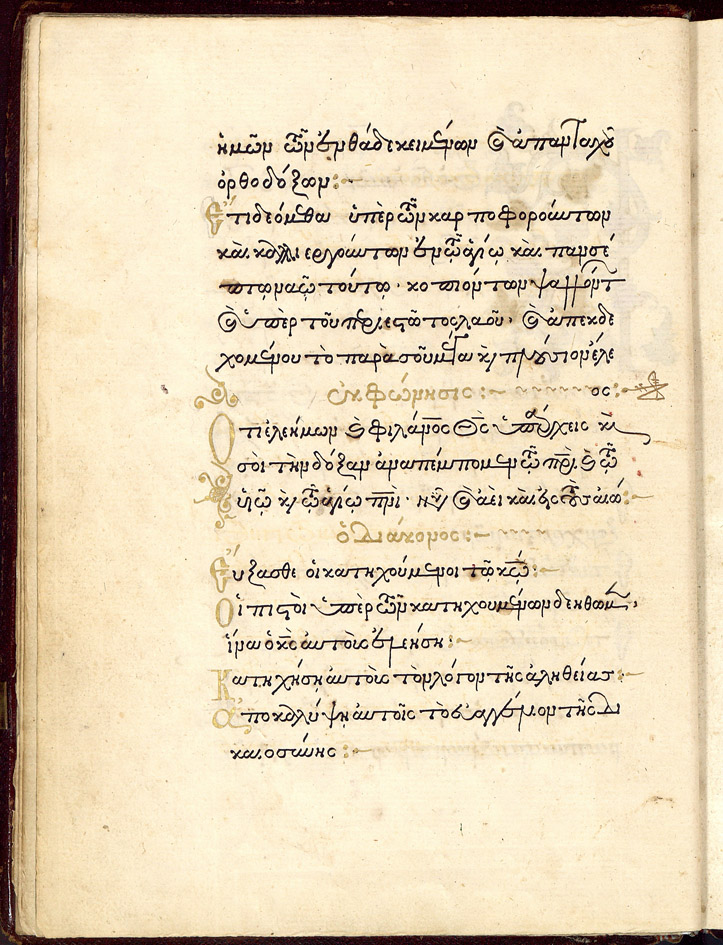 ἡμῶν τῶν ἐνθάδε κειμένων καὶ ἁπανταχοῦ
ὀρθοδόξων:
Ἔτι δεόμεθα ὑπὲρ τῶν καρποφορούντων
καὶ καλλιεργούντων ἐν τῷ ἁγίῳ καὶ πανσέ
πτῳ ναῷ τούτῳ· κοπιόντων ψαλλόντ
καὶ ὑπὲρ τοῦ περιεστῶτος λαοῦ· καὶ ἀπεκδε
χομένου τὸ παρὰ σοῦ μέγα κὶ πλούσιον ἔλε
ἐκφώνησις: ος:
Ὅτι ἐλεήμων καὶ φιλάνος Θς ὑπάρχεις κὶ
σοὶ τὴν δόξαν ἀναπέμπομεν τῷ πρὶ καὶ τῷ
ὑιῷ κὶ τῷ ἁγίῳ πνι· νῦν καὶ ἀεὶ καὶ εἰς τοὺς αἰώ:
ὁ Διάκονος:
Εὔξασθε οἱ κατηχούμενοι τῷ κῷ:
Οἱ πιστοὶ ὑπὲρ τῶν κατηχουμένων δεηθῶμεν,
ἵνα ὁ κς αὐτοὺς ἐλεήσῃ:
Κατηχήσῃ αὐτοὺς τὸν λόγον τῆς ἀληθείας:
Ἀποκαλύψῃ αὐτοῖς τὸ εὐαγγέλιον τῆς δι
καιοσύνης: